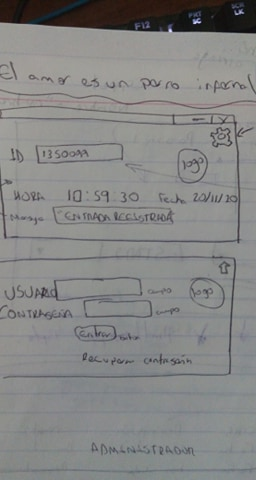 F12
PRT SC
SCR LK
El amor es un perro infernal
ID 1350099
logo
HORA 10:59:30 Fecha 20/11/20
Mensaje ENTRADA REGISTRADA
USUARIO campo
logo
CONTRASEÑA campo
Entrar
Recuperar contraseña
ADMINISTRADOR